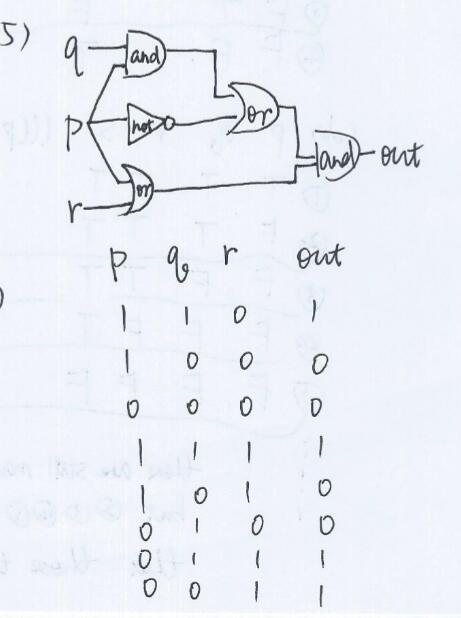 5)
q and
p not or and out
r or
)
p q r out
1 1 0 1
1 0 0 0
0 0 0 0
1 1 1 1
1 0 1 0
0 1 0 0
0 1 1 1
0 0 1 1